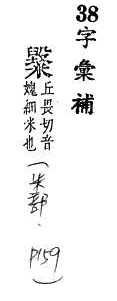 38字彙補
丘畏切音
媿細米也
(米部.P159)